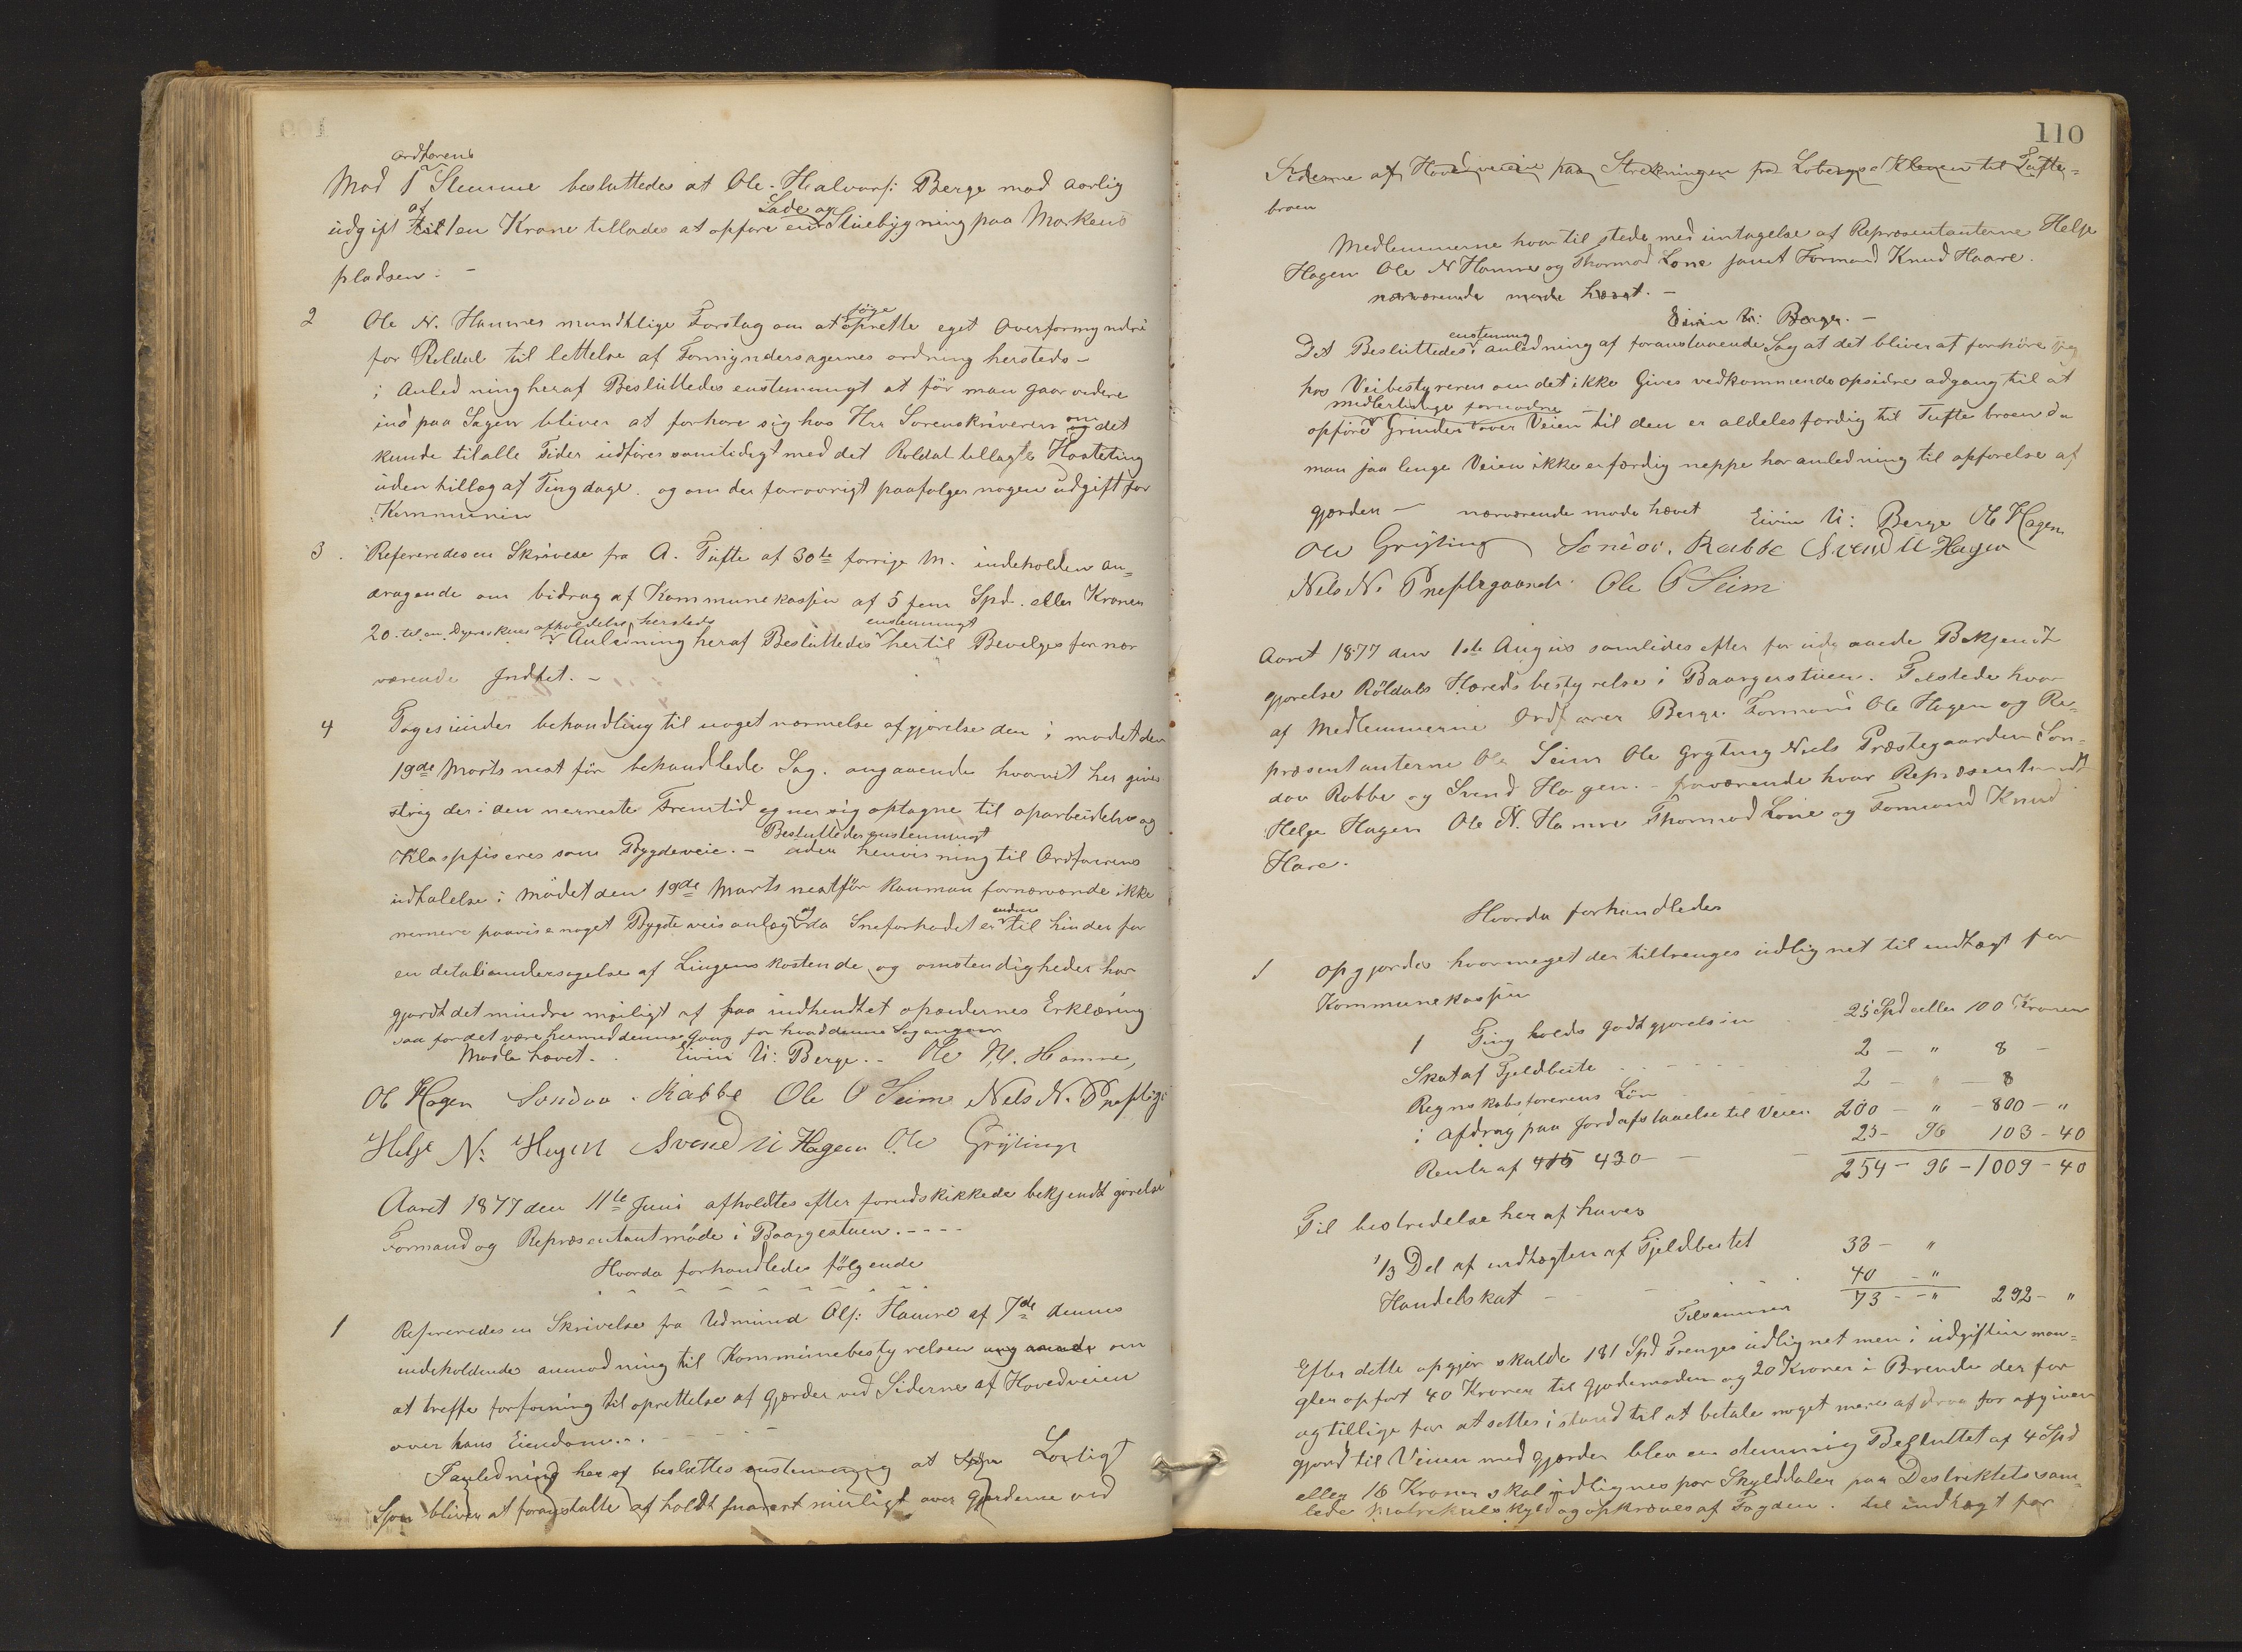 ordførens
Mod 1 Stemme besluttedes at Ole Halvorss: Berge mod aarlig
udgift af til 1 en Krone tillades at opføre en Lade og Stuebygning paa Markens
pladsen. -
2 Ole N. Hamres mundtlige Forslag om at søge oprette eget Overformynderi
for Røldal til lettelse af Formyndersagernes ordning hersteds -
i Anledning heraf Besluttedes enstemmigt at før man gaar videre
ind paa Sagen bliver at forhøre sig hos Hrr Sorenskriveren om og det
kunde til alle Tider udføres samtidigt med det Røldal tillagte Høsteting
uden tillæg af Tingdage. og om der forøvrigt paafølger nogen udgift for
Kommunen
3. Refereredes en Skrivelse fra A. Tufte af 30te forrige M. indeholden an=
dragende om bidrag af Kommunekassen af 5 fem Spd. eller Kroner
20. til en Dyreskues afholdelse hersteds
i Anledning heraf Besluttedes enstemmigt hertil Bevilges for nær
værende Indtet. -
4 Toges under behandling til noget nærmelse afgjørelse den i mødet den
19de Marts nest før behandlede Sag. angaaende hvorvit her gives
strøg der i den nermeste Fremtid egner sig optagne til oparbeidelse og
Klassifiseres som Bygdeveie. - Besluttedes enstemmigt
uden henvisning til Ordførerens
udtalelse i Mødet den 19de Marts nestfør kan man fornærværende ikke
nermere paavise noget Bygdeveisanlæg og da Sneforhodet er endnu til hinder for
en detaliundersøgelse af Lingens kostende og omstendigheder har
gjordt det mindre muiligt at faa indhendtet opsidernes Erklæring
saa for det være hermed denne Gang for hvad denne Sag angaar
Møde hævet. Eivin U: Berge. - Ole N. Hamre,
Ob Hagen Sondov. Rabbe Ole O Seim Nels N. Prestg:
Helje N: Hagen Svend U Hagen Ole Gryting
Aaret 1877 den 11te Juni afholdtes efter forudskikkede bekjendtgjørelse
Formand og Repræsentantmøde i Baargestuen. - - - -
Hvorda forhandledes følgende
1 Refereredes en Skrivelse fra Udmund Ols: Hamre af 7de dennes
indeholdende anmodning til Kommunebestyrelsen angaaende om
at treffe forføining til oprettelse af Gjerder ved Siderne af Hovedveien
over hans Eiendom. . .
I anledning her af besluttes enstemmig at Lovligt
Skjøn bliver at foranstalte af holdt snarest muligt over Gjerderne ved
110
Siderne af Hovedveiene paa Strekningen fra Lobergs Kleven til Tufte=
broen
Medlemmerne hvar til stede med untagelse af Representanterne Helje
Hagen Ole N Hamre og Thormod Lone samt Formand Knud Haare.
nærværende møde hævet. -
Eivin U: Berge. -
Det Besluttedes enstemmig i anledning af foranstaaende Sag at det bliver at forhøre sig
hos Veibestyreren om det ikke Gives vedkommende opsidre adgang til at
opføre midlertidige fornødne Grinder over Veien til den er aldeles færdig til Tufte broen da
man saa lenge Veien ikke er færdig neppe har anledning til opførelse af
gjerder - nærværende møde hævet Eivin U: Berge Ob Hagen
Ole Grytting Sondov. Rabbe Svend U Hagen
Nels N. Prestegaarde. Ole O Seim
Aaret 1877 den 1ste August samledes efter forudgaaede Bekjendt
gjørelse Röldals Hæredsbestyrelse i Baargerstuen. Tilstede hvar
af Medlemmerne Ordfører Berge Formand Ole Hagen og Re=
præsentanterne Ole Seim Ole Grytting Niels Prestegaarden Son=
dov Rabbe og Svend Hagen. - fraværende hvar Repræsentandt
Helge Hagen Ole N. Hamre Thormod Lone og Formand Knud
Hare.
Hvorda forhandledes
1 opgjordes hvormeget der tiltrenges udlignet til indtægt for
Kommunekassen
1 Ting holds godtgjørelsen 25 Spd eller 100 Kroner
Skat af Fjeldbeite - - - 2 - " 8 -
Regnskabsførerens Løn 2 - " - 8
i Afdrag paa Jordafstaaelse til Veien 200 - " - 800 - "
Renta af 415 430 - - - 25 - 96 103 - 40
254 - 96 - 1009 - 40
Til bestridelse her af haves
1/3 Del af indtægten af Fjeldbeitet 33 - "
Handelskat - - 40 - "
Tilsammen 73 - " 292 - "
Efter dette opgjør skulde 181 Spd Trenges udlignet men i udgiften man=
gler opført 40 Kroner til Gjødemoderen og 20 Kroner i Brende der for
og tillige for at settes i stand til at betale noget mere af draa for afgiven
gjord til Veien med gjærder blev en stemmig Besluttet af 4 Spd
eller 16 Kroner skal udlignes par Skylddaler paa Destriktets sam=
lede Matrekulskyld og opkræves af Fogden. til indtægt for